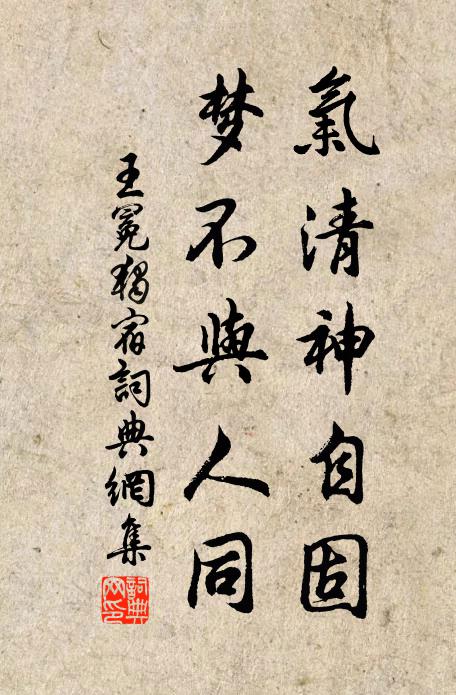 氣清神自固
梦不與人同
王冕獨宿詞典網集
詞典
网印